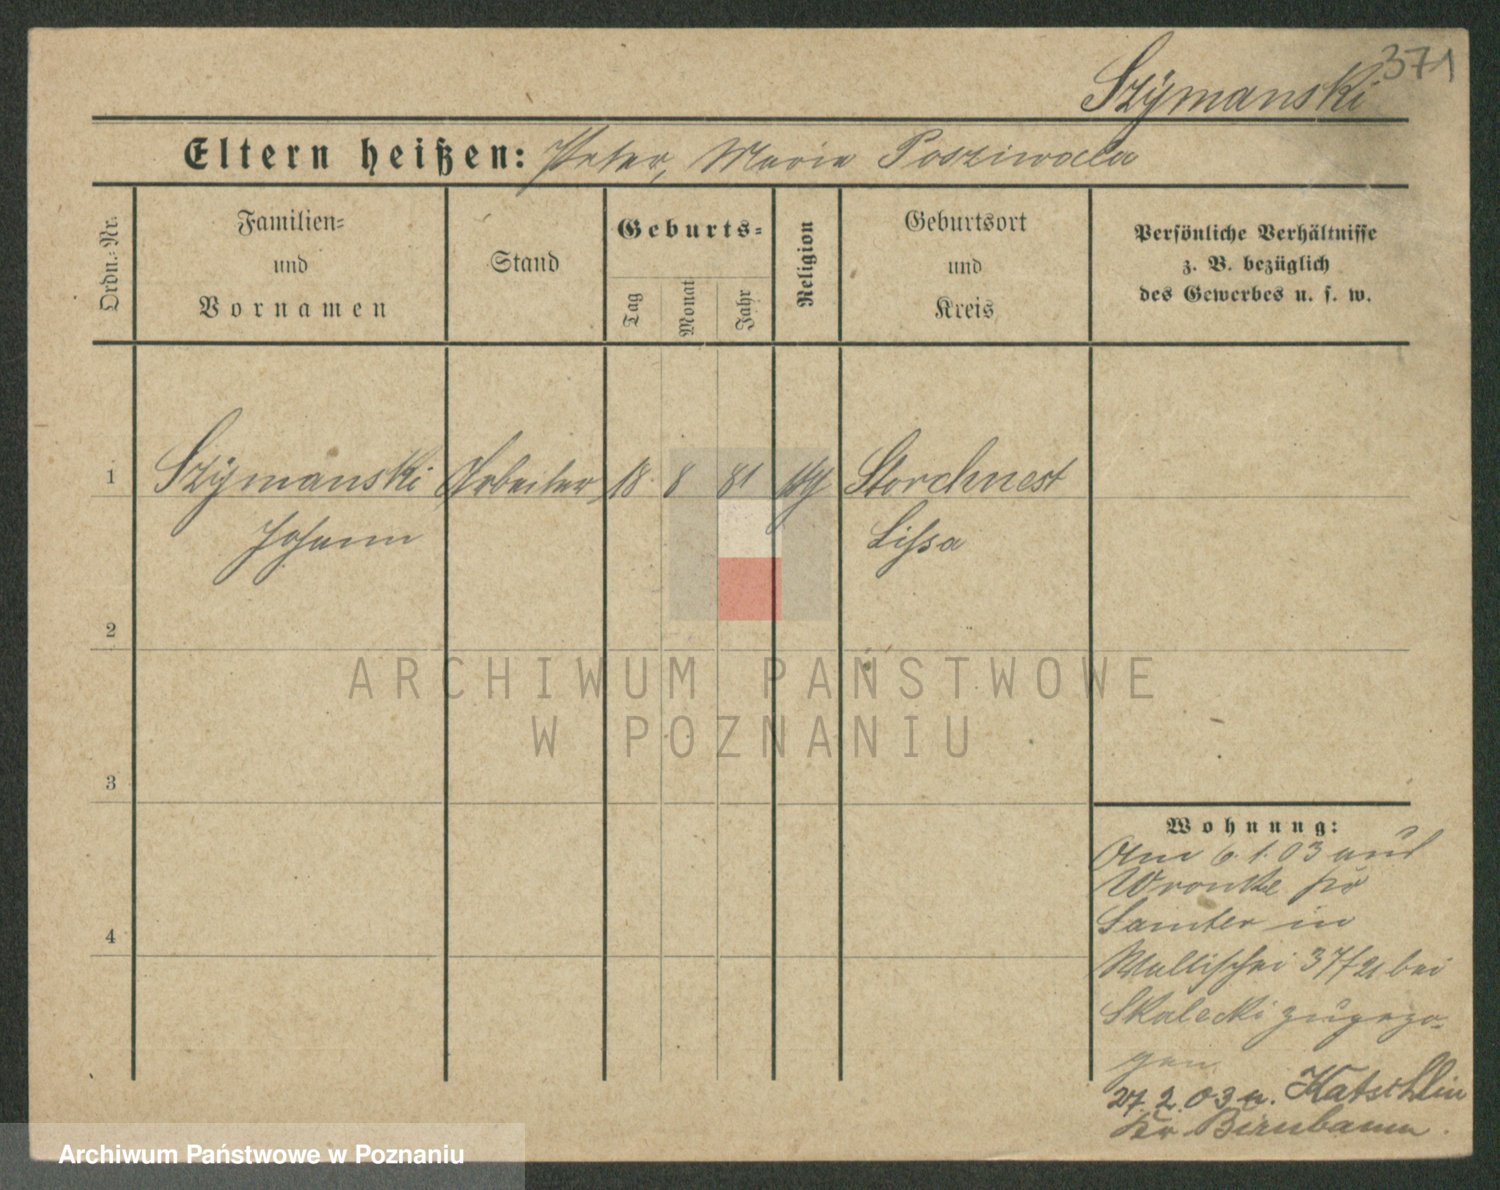 371
Szÿmanski
Eltern heißen: Peter, Marie Posziwala
Ordn.-Nr.
Familien-
und
Vornamen
Stand
Geburts-
Tag
Monat
Jahr
Religion
Geburtsort
und
Kreis
Persönliche Verhältnisse
z. B. bezüglich
des Gewerbes u. s. w.
1 Szÿmanski Arbeiter 18 8 81 Storchnest
Johann Lissa
2
3
4
Wohnung:
Am 6. 1. 03 aus
Wronke Kr
Samter in
Wallischei 37/21 bei
Skalecki zugezo-
gen.
27. 2. 03 n. Katschlin
Kr Birnbaum.
ARCHIWUM PAŃSTWOWE
W POZNANIU
Archiwum Państwowe w Poznaniu